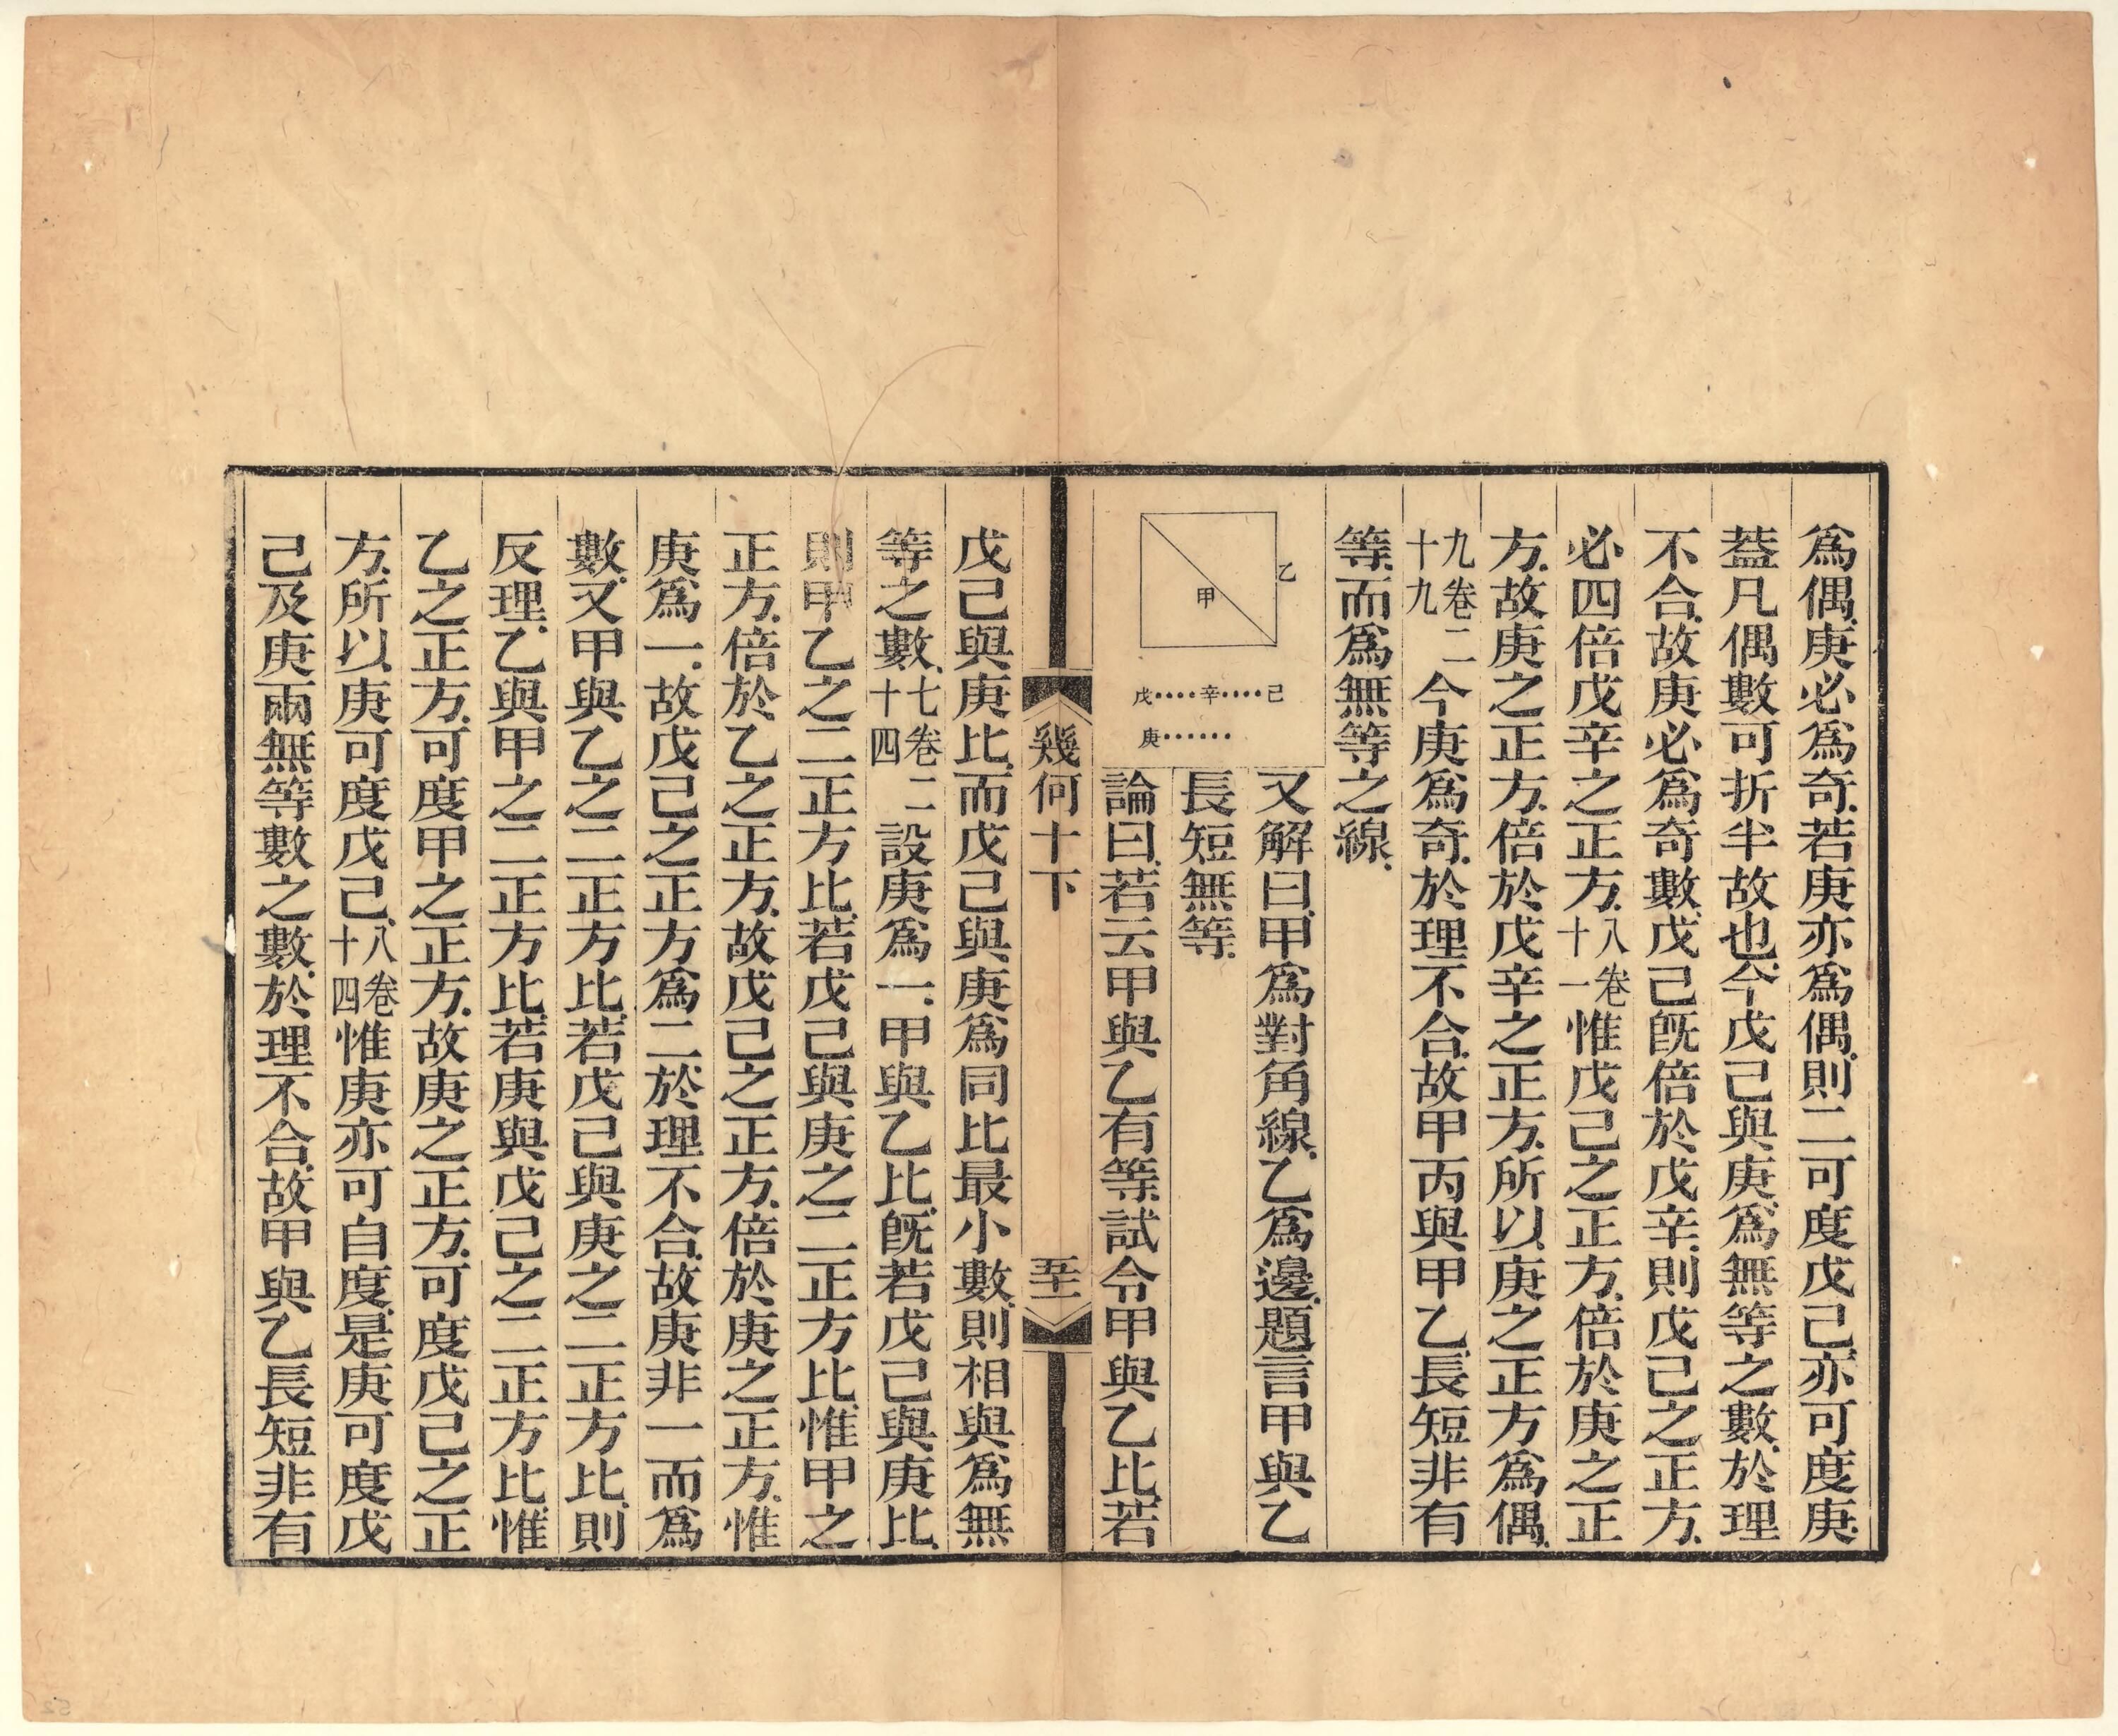 爲偶庚必爲奇若庚亦爲偶則二可度戊己亦可度庚
蓋凡偶數可折半故也今戊己與庚爲無等之數於理
不合故庚必爲奇數戊己旣倍於戊辛則戊己之正方
必四倍戊辛之正方八卷十一惟戊己之正方倍於庚之正
方故庚之正方倍於戊辛之正方所以庚之正方爲偶
九卷二十九今庚爲奇於理不合故甲丙與甲乙長短非有
等而爲無等之線
乙
甲
戊····辛····己
庚······
又解曰甲爲對角線乙爲邊題言甲與乙
長短無等
論曰若云甲與乙有等試令甲與乙比若
幾何十下
五十一
戊己與庚比而戊己與庚爲同比最小數則相與爲無
等之數七卷二十四設庚爲一甲與乙比旣若戊己與庚比
則甲乙之二正方比若戊己與庚之二正方比惟甲之
正方倍於乙之正方故戊己之正方倍於庚之正方惟
庚爲一故戊己之正方爲二於理不合故庚非一而爲
數又甲與乙之二正方比若戊己與庚之二正方比則
反理乙與甲之二正方比若庚與戊己之二正方比惟
乙之正方可度甲之正方故庚之正方可度戊己之正
方所以庚可度戊己八卷十四惟庚亦可自度是庚可度戊
己及庚兩無等數之數於理不合故甲與乙長短非有